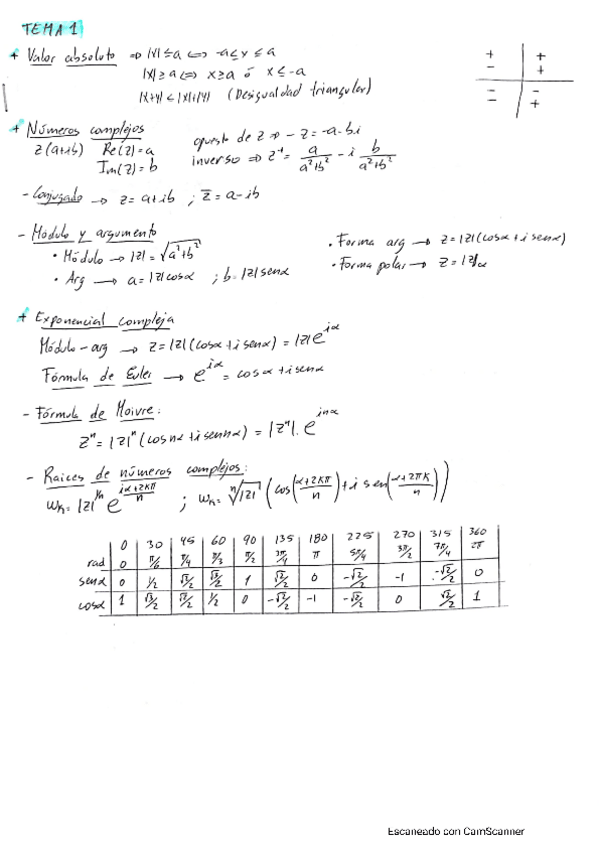 TEMA 1
+ Valor absoluto ⇒ |x| ≤ a ⇔ -a ≤ x ≤ a
|x| ≥ a ⇔ x ≥ a ó x ≤ -a
|x+y| ≤ |x|+|y| (Desigualdad triangular)
+ +
- +
- -
- +
+ Números complejos
z (a+ib) Re(z) = a
Im(z) = b
opuesto de z ⇒ -z = -a-bi
inverso ⇒ z⁻¹ = a/(a²+b²) - i b/(a²+b²)
- Conjugado → z = a+ib ; z̅ = a-ib
- Módulo y argumento
• Módulo → |z| = √(a²+b²)
• Arg → a = |z| cosα ; b = |z| senα
• Forma arg → z = |z| (cosα + i senα)
• Forma polar → z = |z|α
+ Exponencial compleja
Módulo-arg → z = |z| (cosα + i senα) = |z| e^(iα)
Fórmula de Euler → e^(iα) = cosα + i senα
- Fórmula de Moivre:
zⁿ = |z|ⁿ (cos nα + i sen nα) = |zⁿ| · e^(inα)
- Raices de números complejos:
wk = |z|^(1/n) e^(i(α+2kπ)/n) ; wk = ⁿ√|z| (cos((α+2kπ)/n) + i sen((α+2πk)/n))
0 30 45 60 90 135 180 225 270 315 360
rad 0 π/6 π/4 π/3 π/2 3π/4 π 5π/4 3π/2 7π/4 2π
senα 0 1/2 √2/2 √3/2 1 √2/2 0 -√2/2 -1 -√2/2 0
cosα 1 √3/2 √2/2 1/2 0 -√2/2 -1 -√2/2 0 √2/2 1
Escaneado con CamScanner